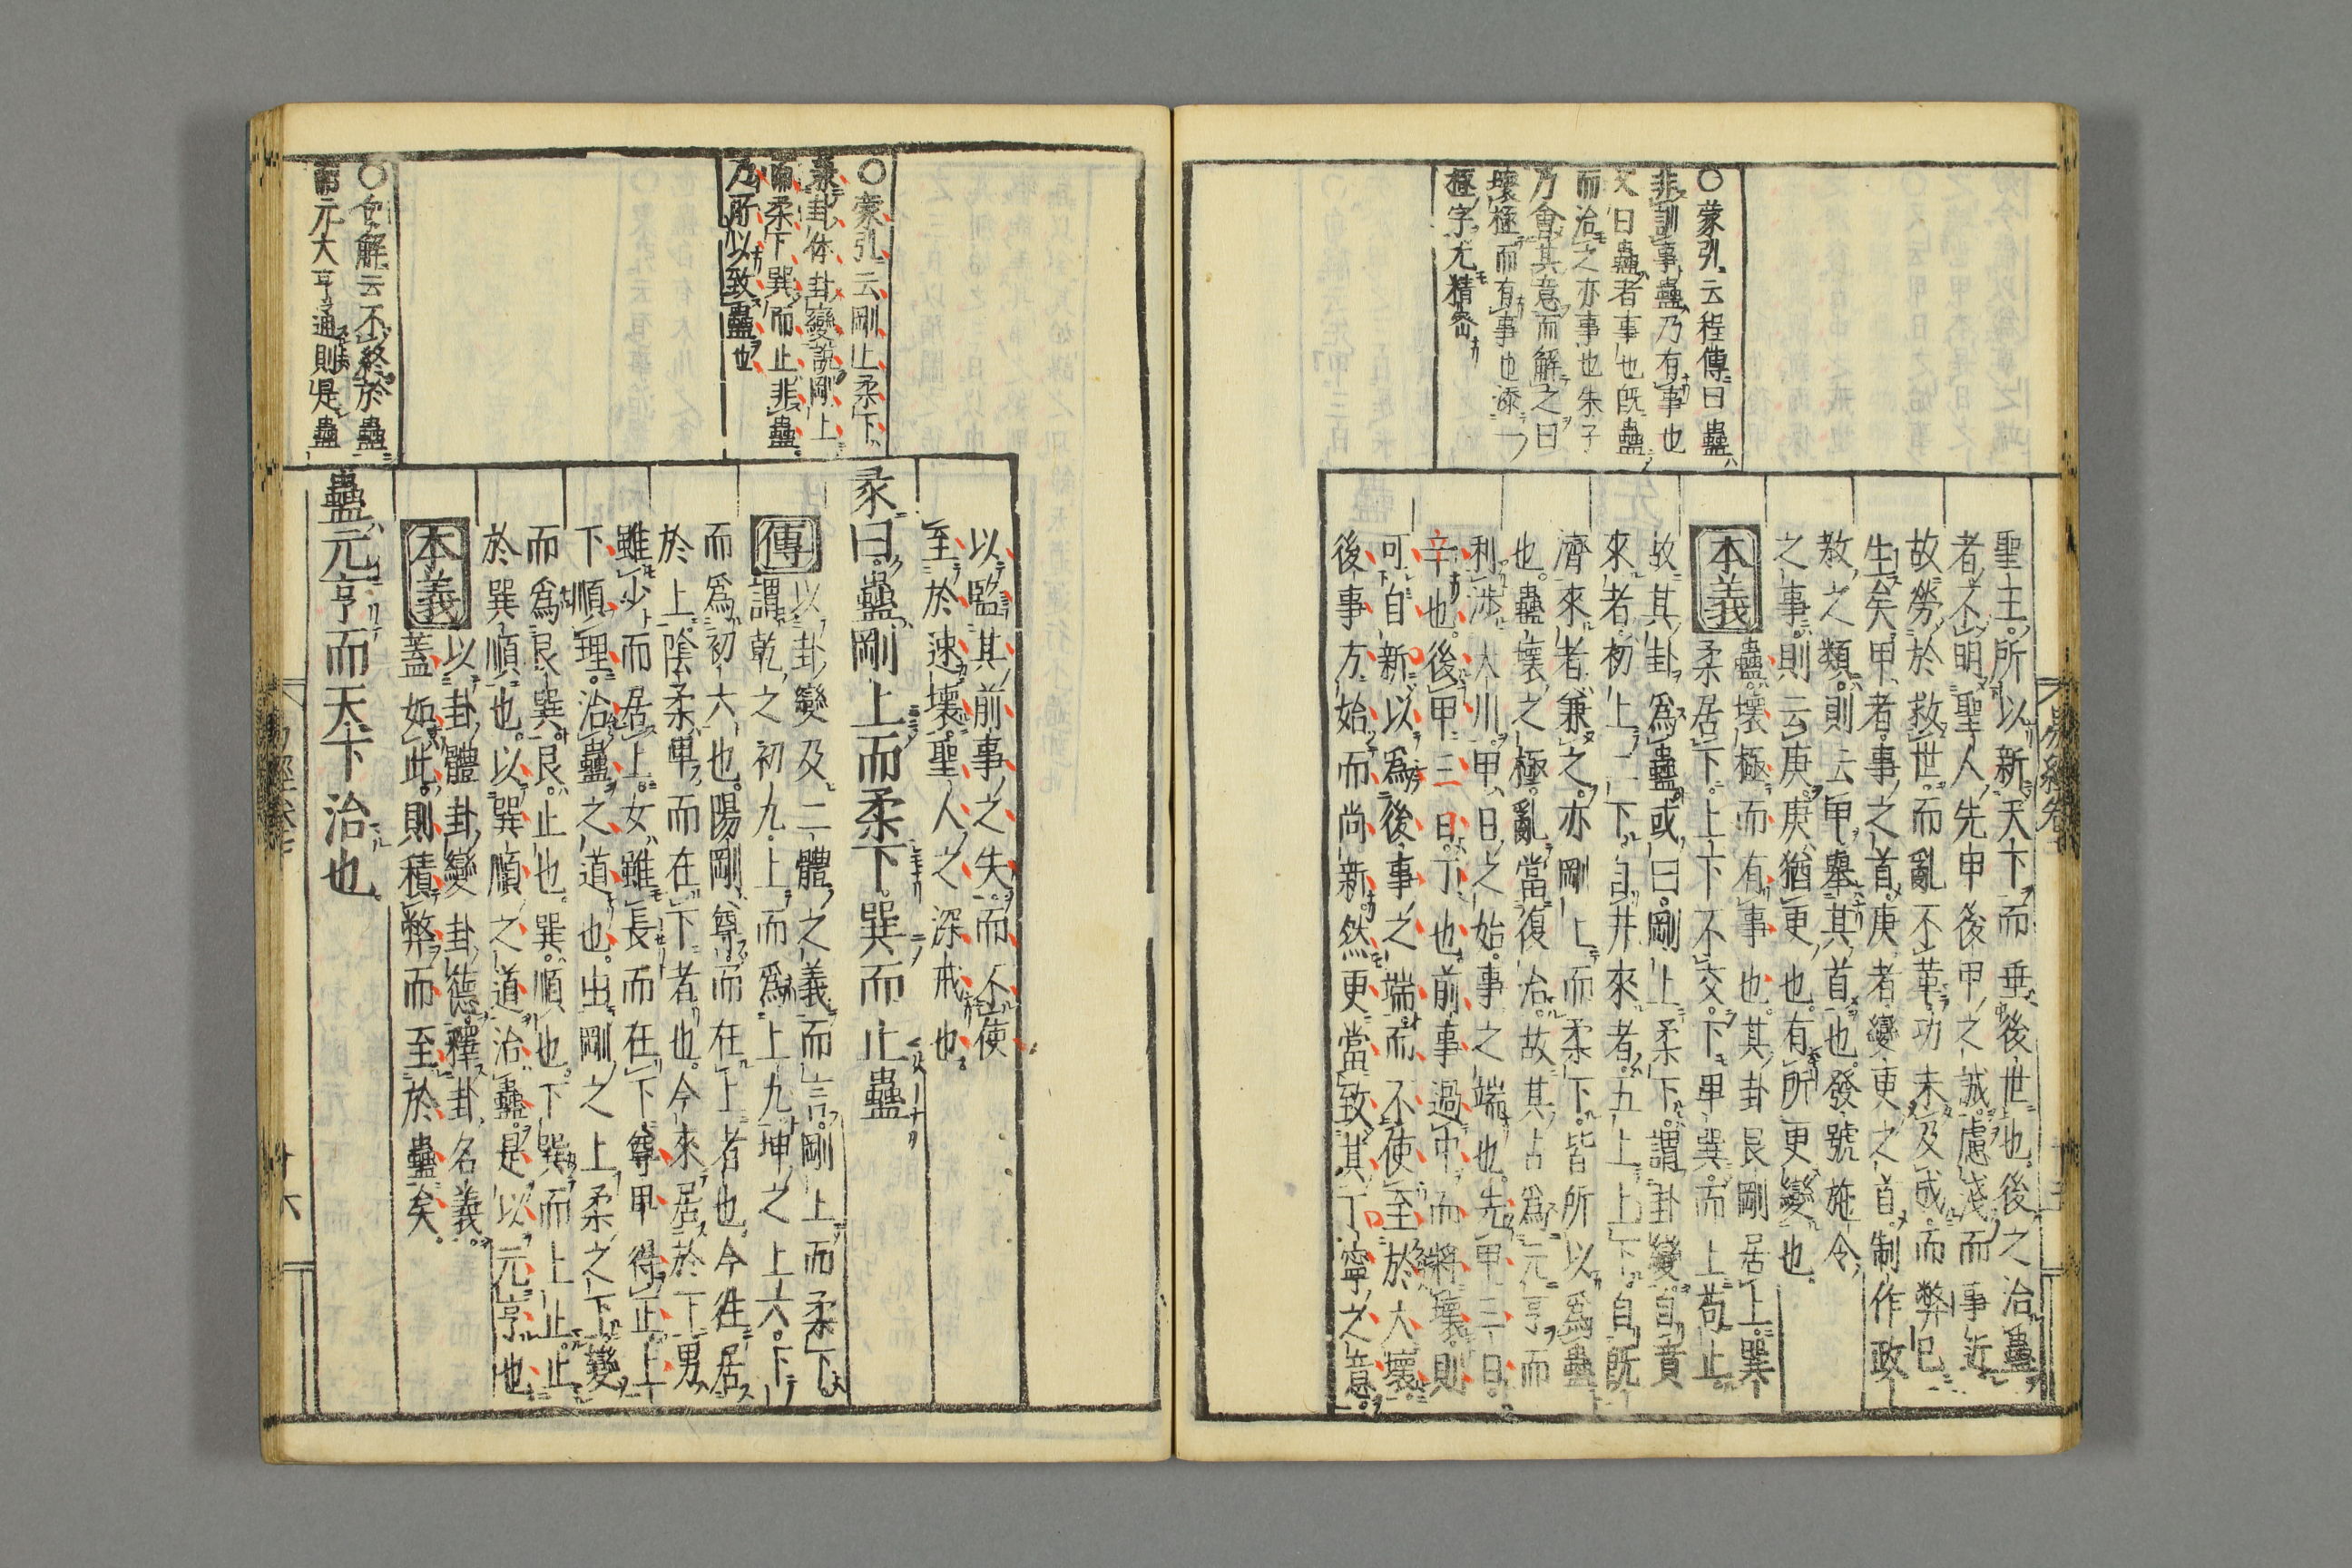 ○蒙引云程傳曰蠱
非訓事蠱乃有事也
又曰蠱者事也既蠱
而治之亦事也朱子
乃會其意而解之曰
壞極而有事也添一
極字尤精密
聖王所以新天下而垂後世也後之治蠱
者不明聖人先甲後甲之誡慮淺而事近
故勞於救世而亂不革功未及成而弊已
生矣甲者事之首庚者變更之首制作政
教之類則云甲舉其首也發號施令
之事則云庚庚猶更也有所更變也
本義
蠱壞極而有事也其卦艮剛居上巽
柔居下上下不交下卑巽而上苟止
故其卦爲蠱或曰剛上柔下謂卦變自賁
來者初上二下自井來者五上上下自既
濟來者兼之亦剛上而柔下皆所以爲蠱
也蠱壞之極亂當復治故其占爲元亨而
利涉大川甲日之始事之端也先甲三日
辛也後甲三日丁也前事過中而將壞則
可自新以爲後事之端而不使至於大壞
後事方始而尚新然更當致其丁寧之意
以監其前事之失而不使
至於速壞聖人之深戒也
○蒙引云剛上柔下
彖卦体卦變說剛上
而柔下巽而止非蠱
乃所以致蠱也
彖曰蠱剛上而柔下巽而止蠱
傳
以卦變及二體之義而言剛上而柔下
謂乾之初九上而爲上九坤之上六下
而爲初六也陽剛尊而在上者也今往居
於上陰柔卑而在下者也今來居於下男
雖少而居上女雖長而在下尊卑得正上
下順理治蠱之道也由剛之上柔之下變
而爲艮巽艮止也巽順也下巽而上止止
於巽順也以巽順之道治蠱是以元亨也
本義
以卦體卦變卦德釋卦名義
蓋如此則積弊而至於蠱矣
解云不終於蠱
而元大亨通則是蠱
蠱元亨而天下治也